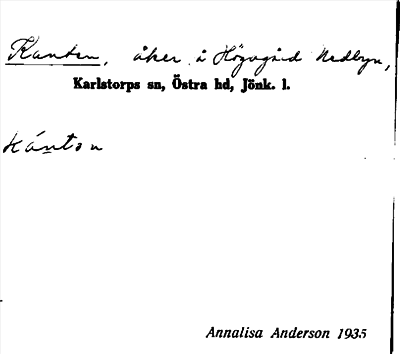 Kanten, åker å Högagård Nedbyn,
Karlstorps sn, Östra hd, Jönk. l.
kántɑn
Annalisa Anderson 1935